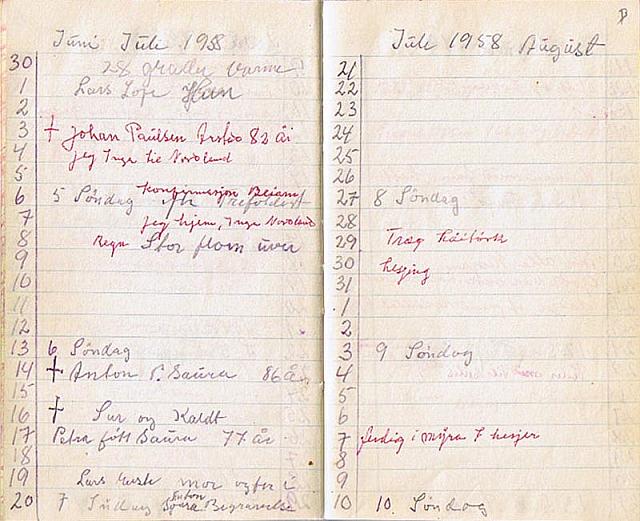 Juni Juli 1958
30 28 grader varme
1 Lars Lofe
2
3 † Johan Paulsen 82 år
4 jeg Inga til Nordland
5
Konfirmasjon Beiarn
6 5 Söndag
7 jeg hjem, Inga Nordland
8 Regn Stor flom
9
10
11
12
13 6 Söndag
14 † Anton P. Saura 86 år
15
16 † Sur og Kaldt
17 Petra født Saura 77 år
18
19 Lars mor og far i
Anton
20 7 Söndag Saura Begravelse
Juli 1958 August
21
22
23
24
25
26
27 8 Söndag
28
29
30 hesjing
31
1
2
3 9 Söndag
4
5
6
7 ferdig i myra 7 hesjer
8
9
10 10. Söndag